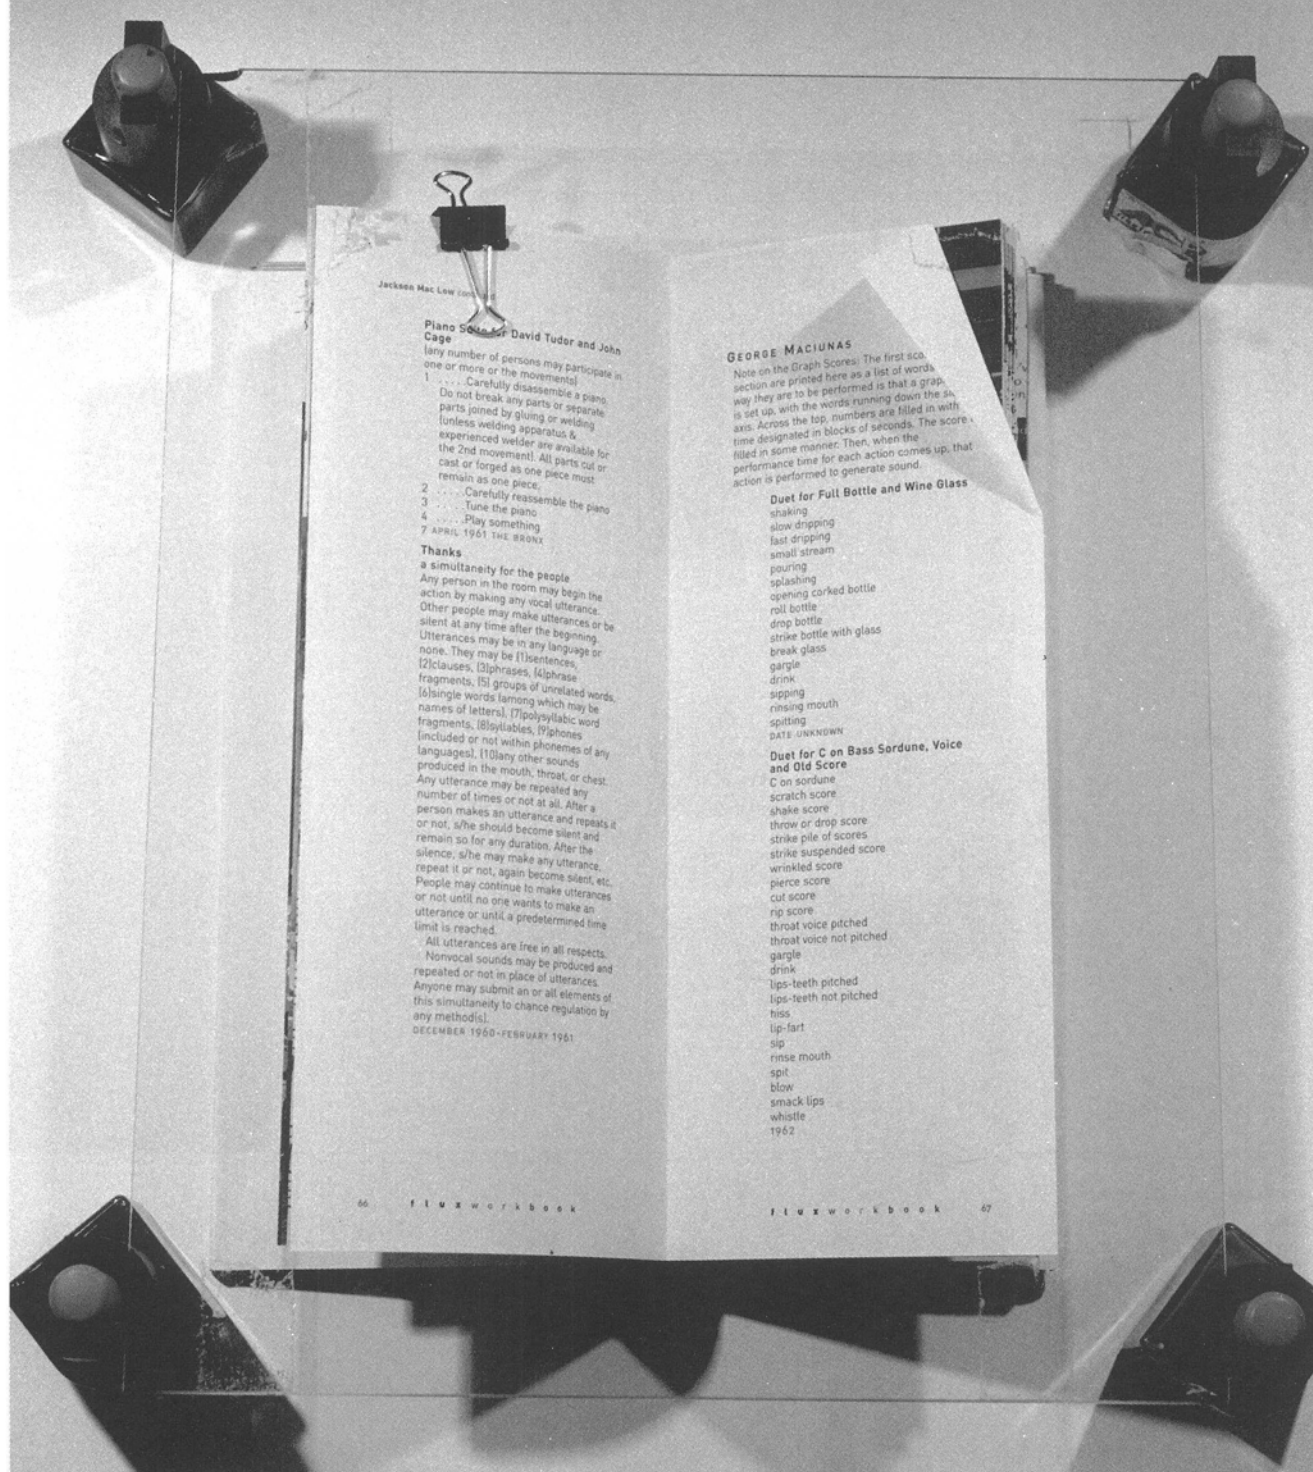 Jackson Mac Low
Piano David Tudor and John
Cage
(any number of persons may participate in
one or more or the movements)
1 .....Carefully disassemble a piano.
Do not break any parts or separate
parts joined by gluing or welding
(unless welding apparatus &
experienced welder are available for
the 2nd movement). All parts cut or
cast or forged as one piece must
remain as one piece.
2 .....Carefully reassemble the piano
3 .....Tune the piano
4 .....Play something
7 APRIL 1961 THE BRONX
Thanks
a simultaneity for the people
Any person in the room may begin the
action by making any vocal utterance.
Other people may make utterances or be
silent at any time after the beginning.
Utterances may be in any language or
none. They may be (1)sentences,
(2)clauses, (3)phrases, (4)phrase
fragments, (5) groups of unrelated words,
(6)single words (among which may be
names of letters), (7)polysyllabic word
fragments, (8)syllables, (9)phones
(included or not within phonemes of any
languages), (10)any other sounds
produced in the mouth, throat, or chest.
Any utterance may be repeated any
number of times or not at all. After a
person makes an utterance and repeats it
or not, s/he should become silent and
remain so for any duration. After the
silence, s/he may make any utterance,
repeat it or not, again become silent, etc.
People may continue to make utterances
or not until no one wants to make an
utterance or until a predetermined time
limit is reached.
All utterances are free in all respects.
Nonvocal sounds may be produced and
repeated or not in place of utterances.
Anyone may submit an or all elements of
this simultaneity to chance regulation by
any method(s).
DECEMBER 1960-FEBRUARY 1961
66 fluxworkbook
GEORGE MACIUNAS
Note on the Graph Scores: The first
section are printed here as a list of words
way they are to be performed is that a
is set up, with the words running down the
axis. Across the top, numbers are filled in with
time designated in blocks of seconds. The score
filled in some manner. Then, when the
performance time for each action comes up, that
action is performed to generate sound.
Duet for Full Bottle and Wine Glass
shaking
slow dripping
fast dripping
small stream
pouring
splashing
opening corked bottle
roll bottle
drop bottle
strike bottle with glass
break glass
gargle
drink
sipping
rinsing mouth
spitting
DATE UNKNOWN
Duet for C on Bass Sordune, Voice
and Old Score
C on sordune
scratch score
shake score
throw or drop score
strike pile of scores
strike suspended score
wrinkled score
pierce score
cut score
rip score
throat voice pitched
throat voice not pitched
gargle
drink
lips-teeth pitched
lips-teeth not pitched
hiss
lip-fart
sip
rinse mouth
spit
blow
smack lips
whistle
1962
fluxworkbook 67